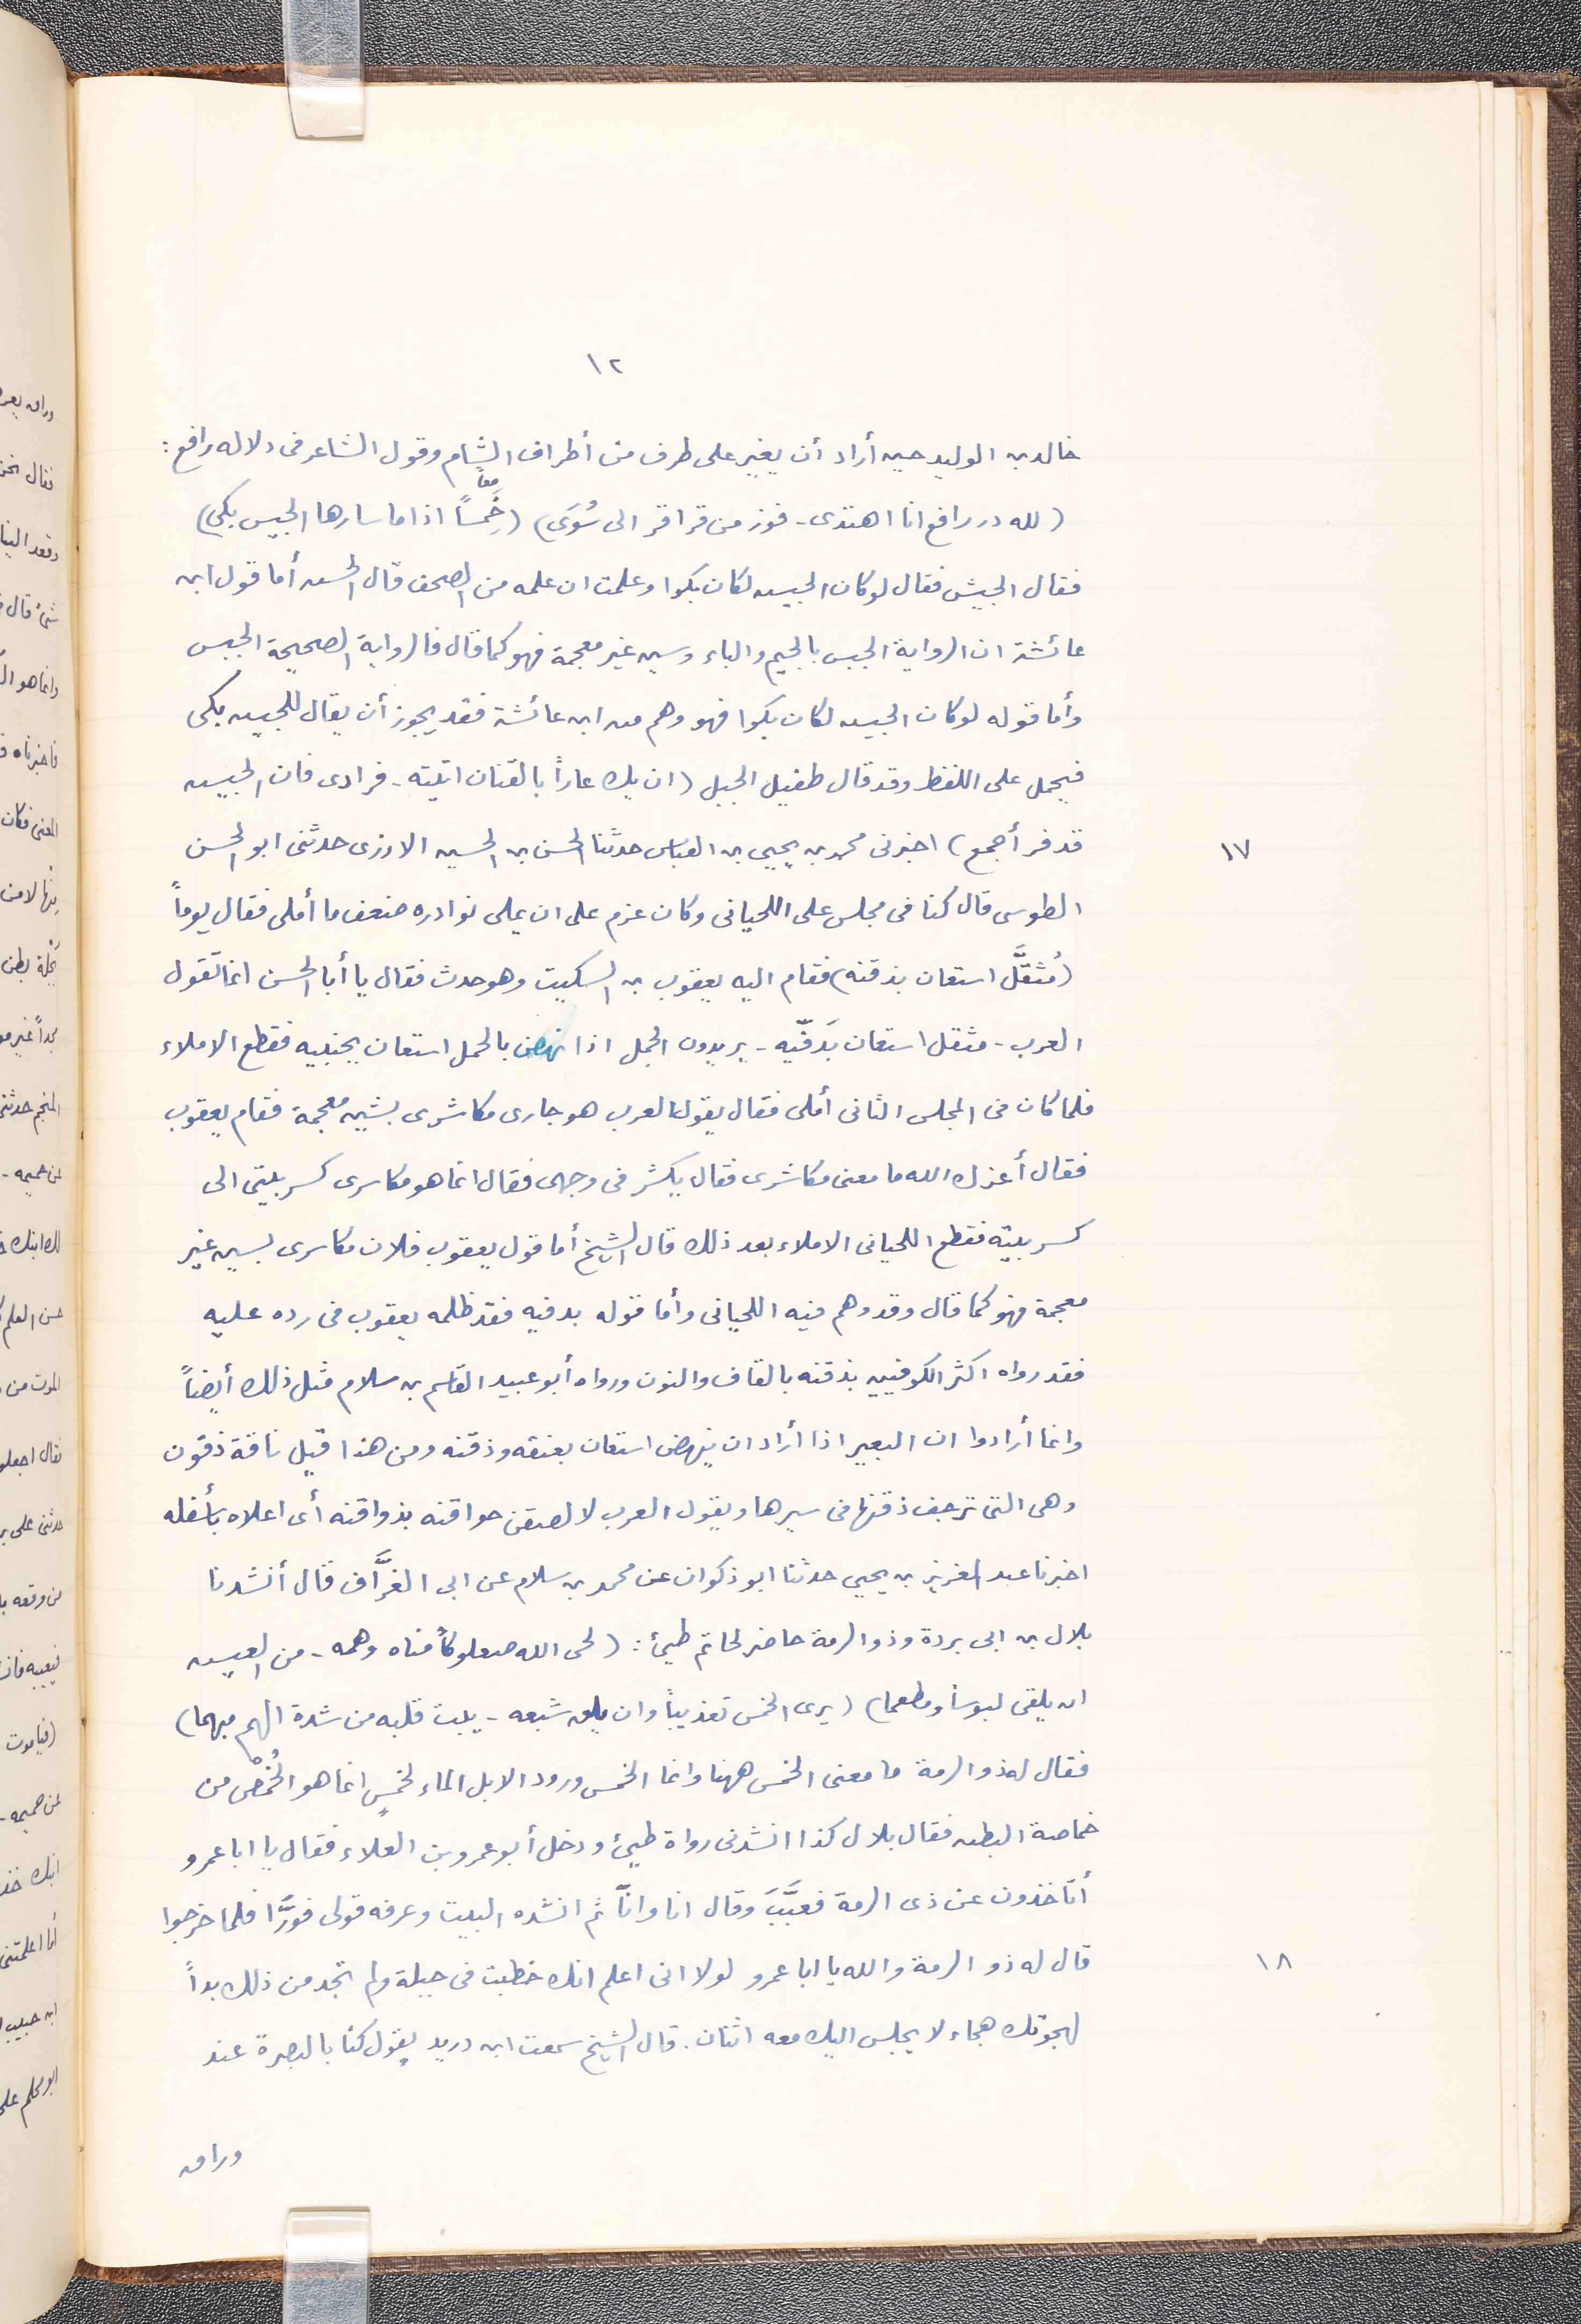 ١٢
خالد بن الوليد حين أراد أن يغير على طرف من أطراف الشام وقول الشاعر فى دلالة رافع :
(لله در رافع انا اهتدى - فوز من قراقر الى سُوَى) (خَِمسًا معاً اذا ما سارها الجيس بكى)
فقال الجيش فقال لو كان الجيس لكان بكوا وعلمت ان علمه من الصحف قال الحسن أما قول ابن
عائشة ان الرواية الجبس بالجيم والباء وسين غير معجمة فهو كما قال فالرواية الصحيحة الجبس
وأما قوله لو كان الجيس لكان بكوا فهو وهم من ابن عائشة فقد يجوز أن يقال للجيس بكى
فيحمل على اللفظ وقد قال طفيل الجبل (ان يك عاراً بالقنان اتيته - فرارى فان الجيس
قد فر أجمع) اخبرنى محمد بن يحيى بن العباس حدثنا الحسن بن الحسين الازدى حدثنى ابو الحسن
١٧
الطوسى قال كنا فى مجلس على اللحيانى وكان عزم على ان يملى نوادره ضعف ما أملى فقال يوماً
(مُثقَّل استعان بذقنه) فقام اليه يعقوب بن السكيت وهو حدث فقال يا أبا الحسن انما تقول
العرب - مثقل استعان بَدفّيه - يريدون الجمل اذا نهض بالحمل استعان بجنبيه فقطع الاملاء
فلما كان فى المجلس الثانى أملى فقال يقول العرب هو جارى مكاشرى بشين معجمة فقام يعقوب
فقال أعزك الله ما معنى مكاشرى فقال يكشر فى وجهى فقال انما هو مكاسرى كسر بيتى الى
كسر بيته فقطع اللحيانى الاملاء بعد ذلك قال الشيخ أما قول يعقوب فلان مكاسرى بسين غير
معجمة فهو كما قال وقد وهم فيه اللحيانى وأما قوله بدفيه فقد ظلمه يعقوب فى رده عليه
فقد رواه اكثر الكوفيين بذقنه بالقاف والنون ورواه أبو عبيد القاسم بن سلام مثل ذلك أيضاً
وانما أرادوا ان البعير اذا أراد ان ينهض استعان بعنقه وذقنه ومن هذا قيل ناقة ذقون
وهى التى ترجف ذقنها فى سيرها ويقول العرب لالصقن حواقنه بذواقنه أى اعلاه بأسفله
اخبرنا عبد العزيز بن يحيى حدثنا ابو ذكوان عن محمد بن سلام عن ابى الغرَّاف قال أنشدنا
بلال بن ابى بردة وذو الرمة حاضر لحاتم طيئ : (لحى الله صعلوكاً مناه وهمه - من العيس
ان يلقى لبوساً ومطعما) (يرى الخمس تعذيباً وان يلق شبعه - يبت قلبه من شدة الهم مبهما)
فقال له ذو الرمة ما معنى الخمس ههنا وانما الخمس ورود الابل الماء لخمسٍ انما هو الخُمْص من
خماصة البطن فقال بلال كذا انشدنى رواة طيئ ودخل أبو عمرو بن العلاء فقال يا ابا عمرو
أتأخذون عن ذى الرمة فعبَّبَ وقال انا وانّا ثم انشده البيت وعرفه قولى فورَّا فلما خرجوا
قال له ذو الرمة والله يا ابا عمرو لولا انى اعلم انك خطبت فى حبلة ولم تجد من ذلك بداً
١٨
لهجوتك هجاء لا يجلس اليك معه اثنان . قال الشيخ سمعت ابن دريد يقول كنا بالبصرة عند
وراق